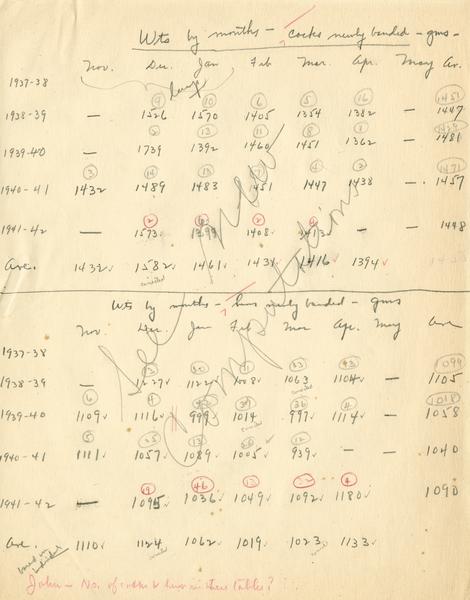 Wts by months - cocks newly banded - gms -
Nov. Dec. Jan Feb Mar. Apr. May Av.
1937-38
9 10 6 5 16 1451
1938-39 — 1526 1570 1405 1354 1382 — 1447
2 13 11 8 1
1939-40 — 1739 1392 1460 1451 1362 — 1481
3 1471
1940-41 1432 1489 1483 1451 1447 1438 — 1457
2 2
1941-42 — 1573 1408 — — 1448
Ave. 1432 1582 1461 1431 1416 1394
See Inter
Computations
Wts by months - hens newly banded - gms
Nov. Dec. Jan Feb Mar Apr. May Ave
1937-38
1099
1938-39 — 1227 1122 1008 1063 1104 — 1105
6 4 1018
1939-40 1109 1116 999 1014 997 1114 — 1058
5 25 13 12
1940-41 1181 1057 1089 1005 939 — — 1040
19 46 13 4
1941-42 — 1095 1036 1049 1092 1180 1090
Ave. 1110 1124 1062 1019 1023 1133
John - No. of cocks & hens in these tables?